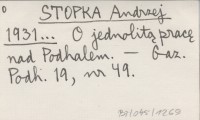 STOPKA Andrzej
1931... O jednolitą pracę
nad Podhalem. — Gaz.
Podh. 19, nr 49.